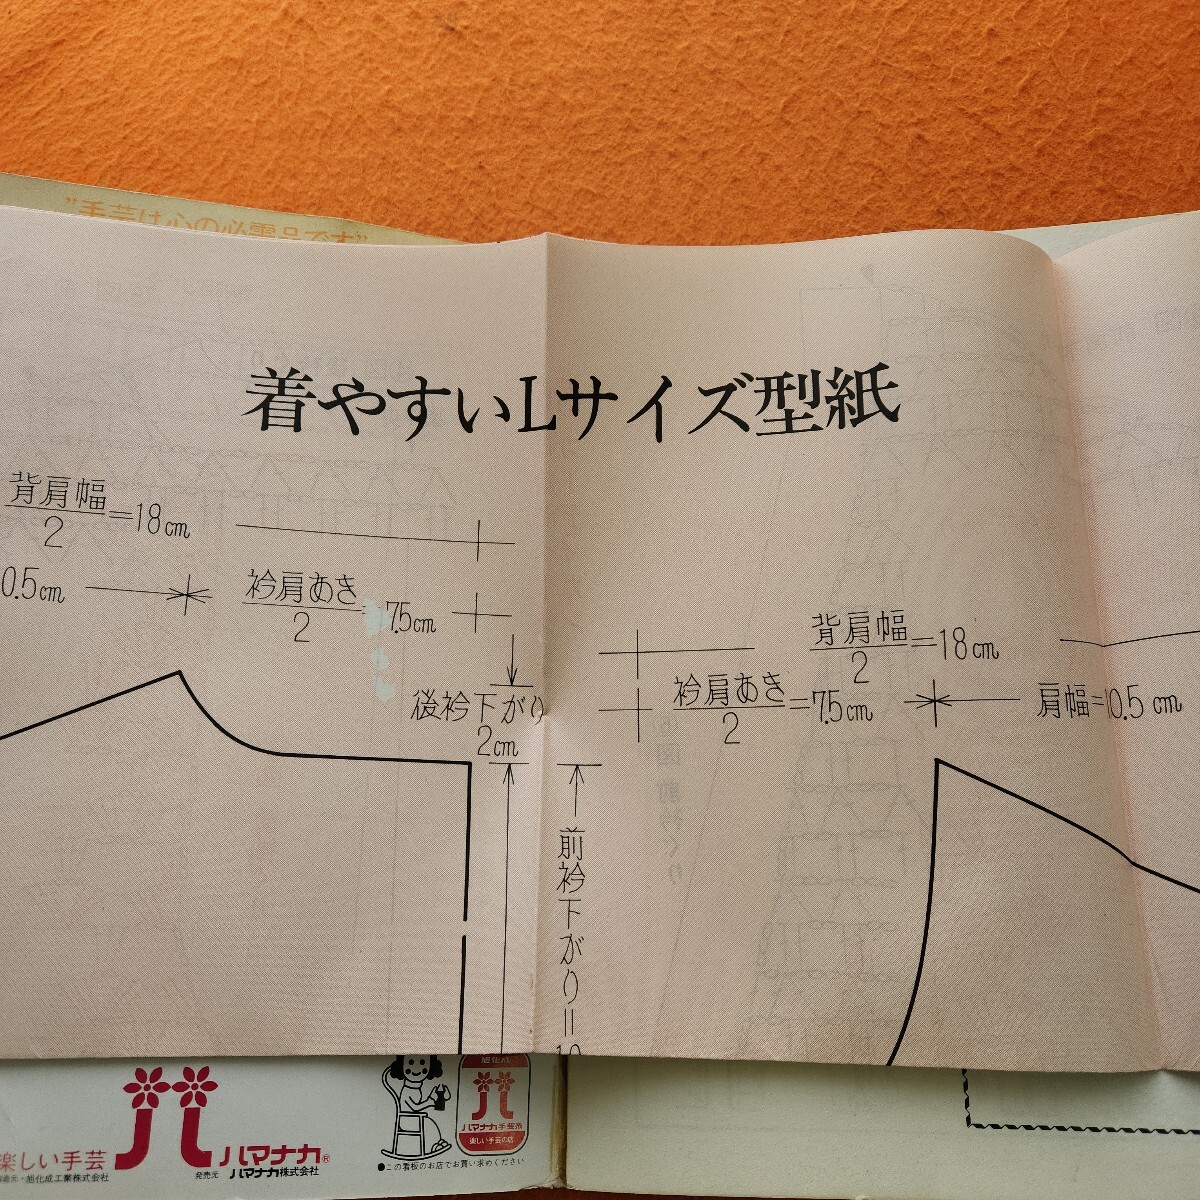 "手芸は心の必需品です"
着やすいLサイズ型紙
背肩幅/2=18cm
0.5cm
衿肩あき/2=7.5cm
後衿下がり
2cm
背肩幅/2=18cm
衿肩あき/2=7.5cm
肩幅=10.5cm
前衿下がり=
6図 前衿ぐり
楽しい手芸
ハマナカ®
発売元 ハマナカ株式会社
造元・旭化成工業株式会社
旭化成
ハマナカ手芸糸
楽しい手芸の店
●この看板のお店でお買い求めください